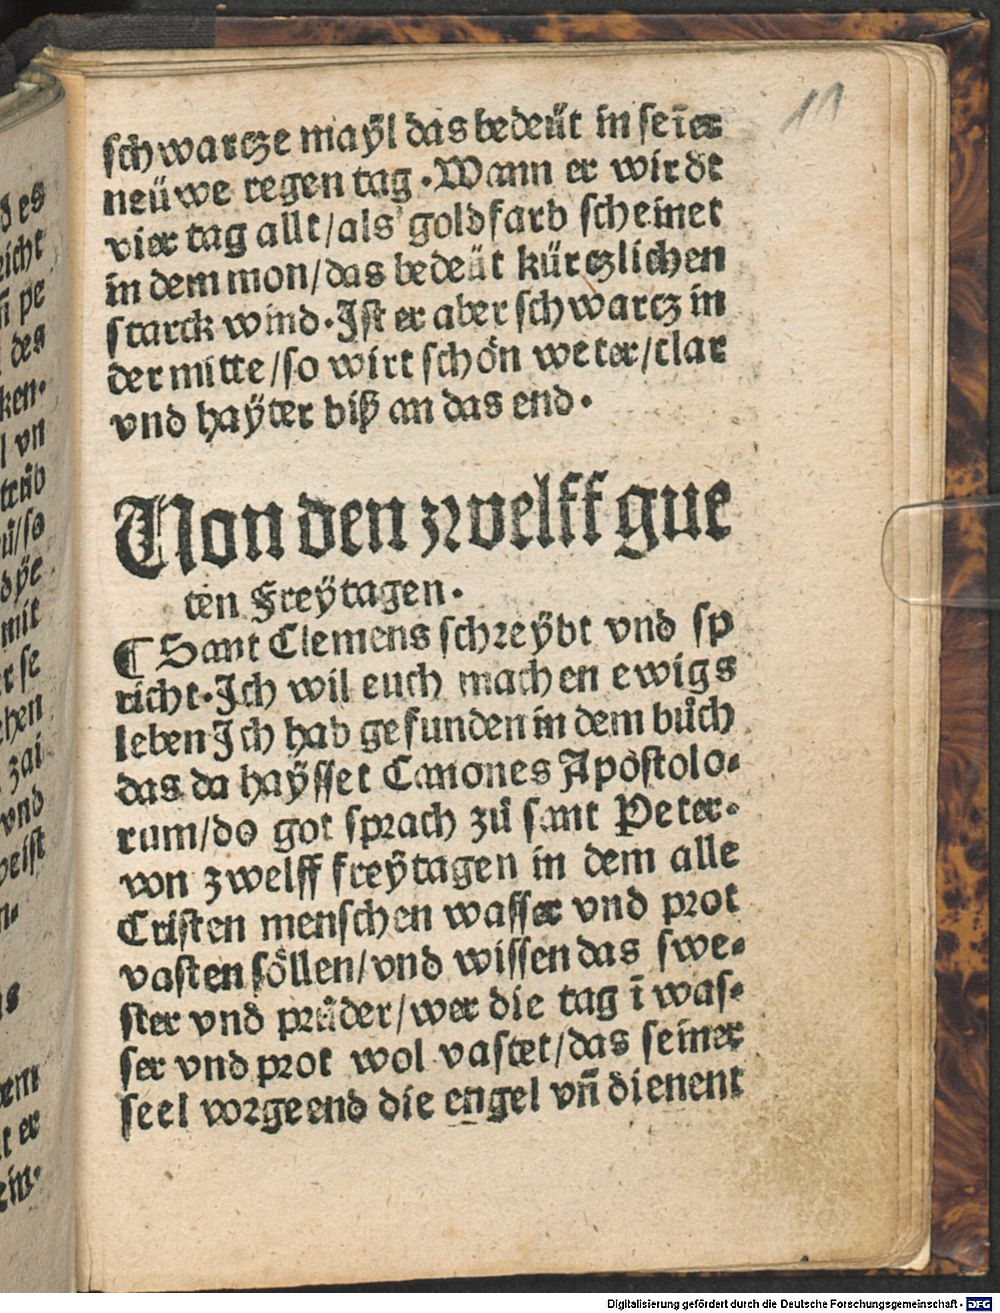 11
schwartze maÿl das bedeüt in seīer
neüwe regen tag. Wann er wirdt
vier tag allt/als goldfarb scheinet
in dem mon/das bedeüt kürtzlichen
starck wind. Ist er aber schwartz in
der mitte/so wirt schön weter/clar
vnd haÿter biß an das end.
Von den zwelff gue
ten Freÿtagen.
¶ Sant Clemens schreÿbt vnd sp
richt. Ich wil euch machen ewigs
leben Ich hab gefunden in dem bůch
das da haÿsset Canones Apostolo⸗
rum/do got sprach zů sant Peter.
von zwelff freÿtagen in dem alle
Cristen menschen wasser vnd prot
vasten söllen/vnd wissen das swe⸗
ster vnd průder/wer die tag ī was⸗
ser vnd prot wol vastet/das seiner
seel vorgeend die engel vn̄ dienent
Digitalisierung gefördert durch die Deutsche Forschungsgemeinschaft - DFG